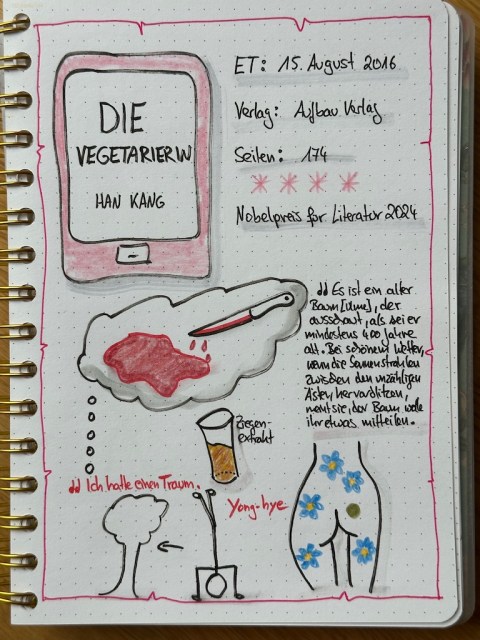 DIE
VEGETARIERIN
HAN KANG
ET: 15. August 2016
Verlag: Aufbau Verlag
Seiten: 174
Nobelpreis für Literatur 2024
„ Es ist ein alter
Baum [Ulme], der
ausschaut, als sei er
mindestens 400 Jahre
alt. Bei schönem Wetter,
wenn die Sonnenstrahlen
zwischen den unzähligen
Ästen hervorblitzen,
meint sie, der Baum wolle
ihr etwas mitteilen.
Ziegen-
extrakt
„ Ich hatte einen Traum.
Yong-hye